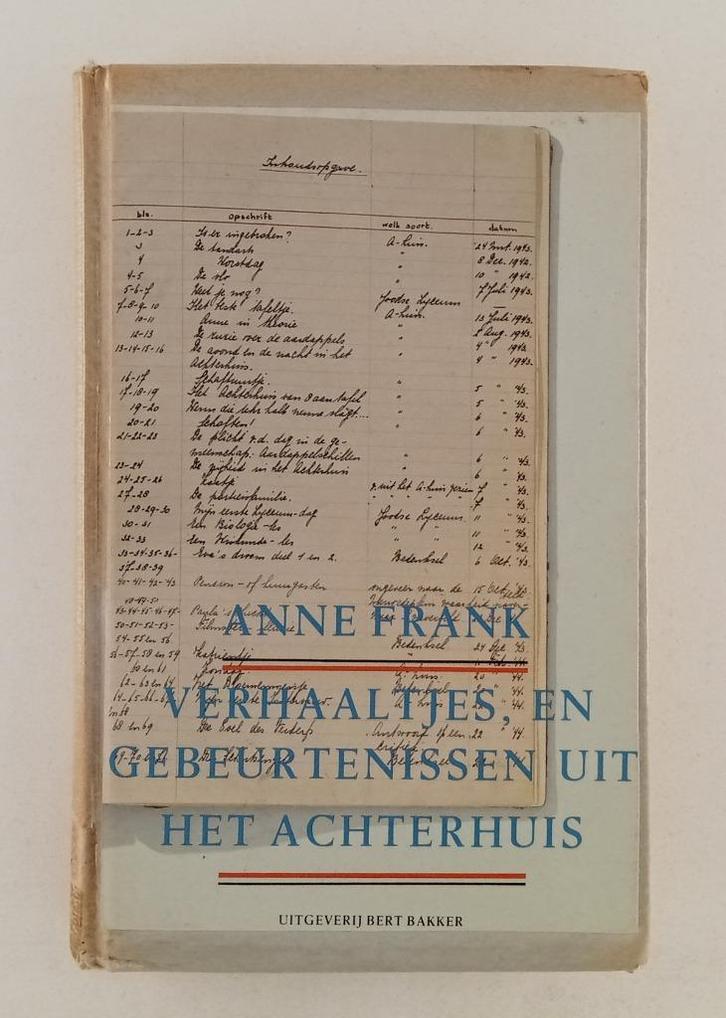 Inhoudsopgave.
blz. Opschrift welk soort. datum
1-2-3 Is er ingebroken? A-huis. 24 Mrt. 1943.
3 De tandarts " 8 Dec. 1942.
4 Worstdag " 10 " 1942.
4-5 De vlo " 7 Juli 1943.
5-6-7 Weet je nog? Joodse Lyceum
7-8-9-10 Het beste tafeltje. A-huis. 13 Juli 1943.
10-11 Anne in theorie " 2 Aug. 1943.
12-13 De ruzie over de aardappels " 4 " 1943.
13-14-15-16 De avond en de nacht in het " 4 " 1943.
Achterhuis.
16-17 Schaftuurtje. " 5 " '43.
17-18-19 Het Achterhuis van 8 aan tafel " 5 " '43.
19-20 Wenn die Uhr halb neune slägt.... " 6 " '43.
20-21 Schoften! " 6 " '43.
21-22-23 De plicht v.d. dag in de ge-
meenschap: Aardappelschillen " 6 " '43.
23-24 De vrijheid in het Achterhuis " 6 " '43.
24-25-26 Kaatje v. uit het A-huis gezien 7 " '43.
27-28 De portiersfamilie. " " " " 7 " '43.
28-29-30 Mijn eerste Lyceum-dag Joodse Lyceum 11 " '43.
30-31 Een Biologie-les " " 11 " '43.
32-33 Een Wiskunde-les " " 12 " '43.
33-34-35-36- Eva's droom deel 1 en 2. Bedenksel 6 Oct. '43.
37-38-39
40-41-42-43 Pension- of huurgasten ongeveer naar de 15 Oct. '43.
Paula's
54-55 en 56 Bedenksel 24 Dec '43.
56-57-58 en 59 Katrientje
60 en 61 Zondag A-huis 20 " '44.
62-63 en 64 Het Bloemenmeisje Bedenksel " '44.
64-65-66-67 A-huis " '44.
en 68
68 en 69 22 " '44.
69-70 Bedenksel
ANNE FRANK
VERHAALTJES, EN
GEBEURTENISSEN UIT
HET ACHTERHUIS
UITGEVERIJ BERT BAKKER